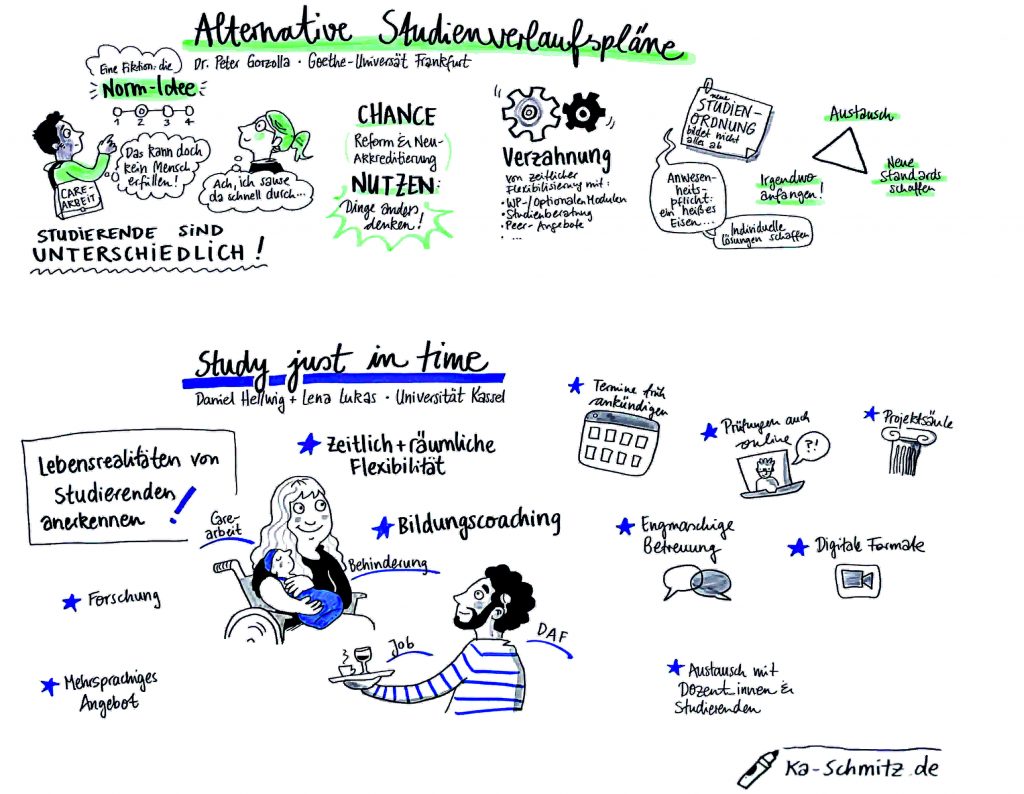 Alternative Studienverlaufspläne
Dr. Peter Gorzolla · Goethe-Universät Frankfurt
Eine Fiktion: die
Norm-Idee
1 2 3 4
Das kann doch
kein Mensch
erfüllen!
CARE-
ARBEIT
Ach, ich sause
da schnell durch...
STUDIERENDE SIND
UNTERSCHIEDLICH!
CHANCE
Reform & Neu-
Arkreditierung
NUTZEN:
Dinge anders
denken!
Verzahnung
von zeitlicher
Flexibilisierung mit:
· WP-/Optionalen Modulen
· Studienberatung
· Peer-Angebote
· ...
neue
STUDIEN-
ORDNUNG
bildet nicht
alles ab
Anwesen-
heits-
pflicht:
ein heißes
Eisen...
Individuelle
Lösungen schaffen
Austausch
Irgendwo
anfangen!
Neue
Standards
schaffen
Study just in time
Daniel Hellwig + Lena Lukas · Universität Kassel
Lebensrealitäten von
Studierenden
anerkennen!
Zeitlich + räumliche
Flexibilität
Care-
arbeit
Bildungscoaching
Behinderung
Forschung
Mehrsprachiges
Angebot
Job
DAF
Termine früh
ankündigen
Prüfungen auch
online
?!
Projektsäule
Engmaschige
Betreuung
Digitale Formate
Austausch mit
Dozent:innen &
Studierenden
Ka-Schmitz.de